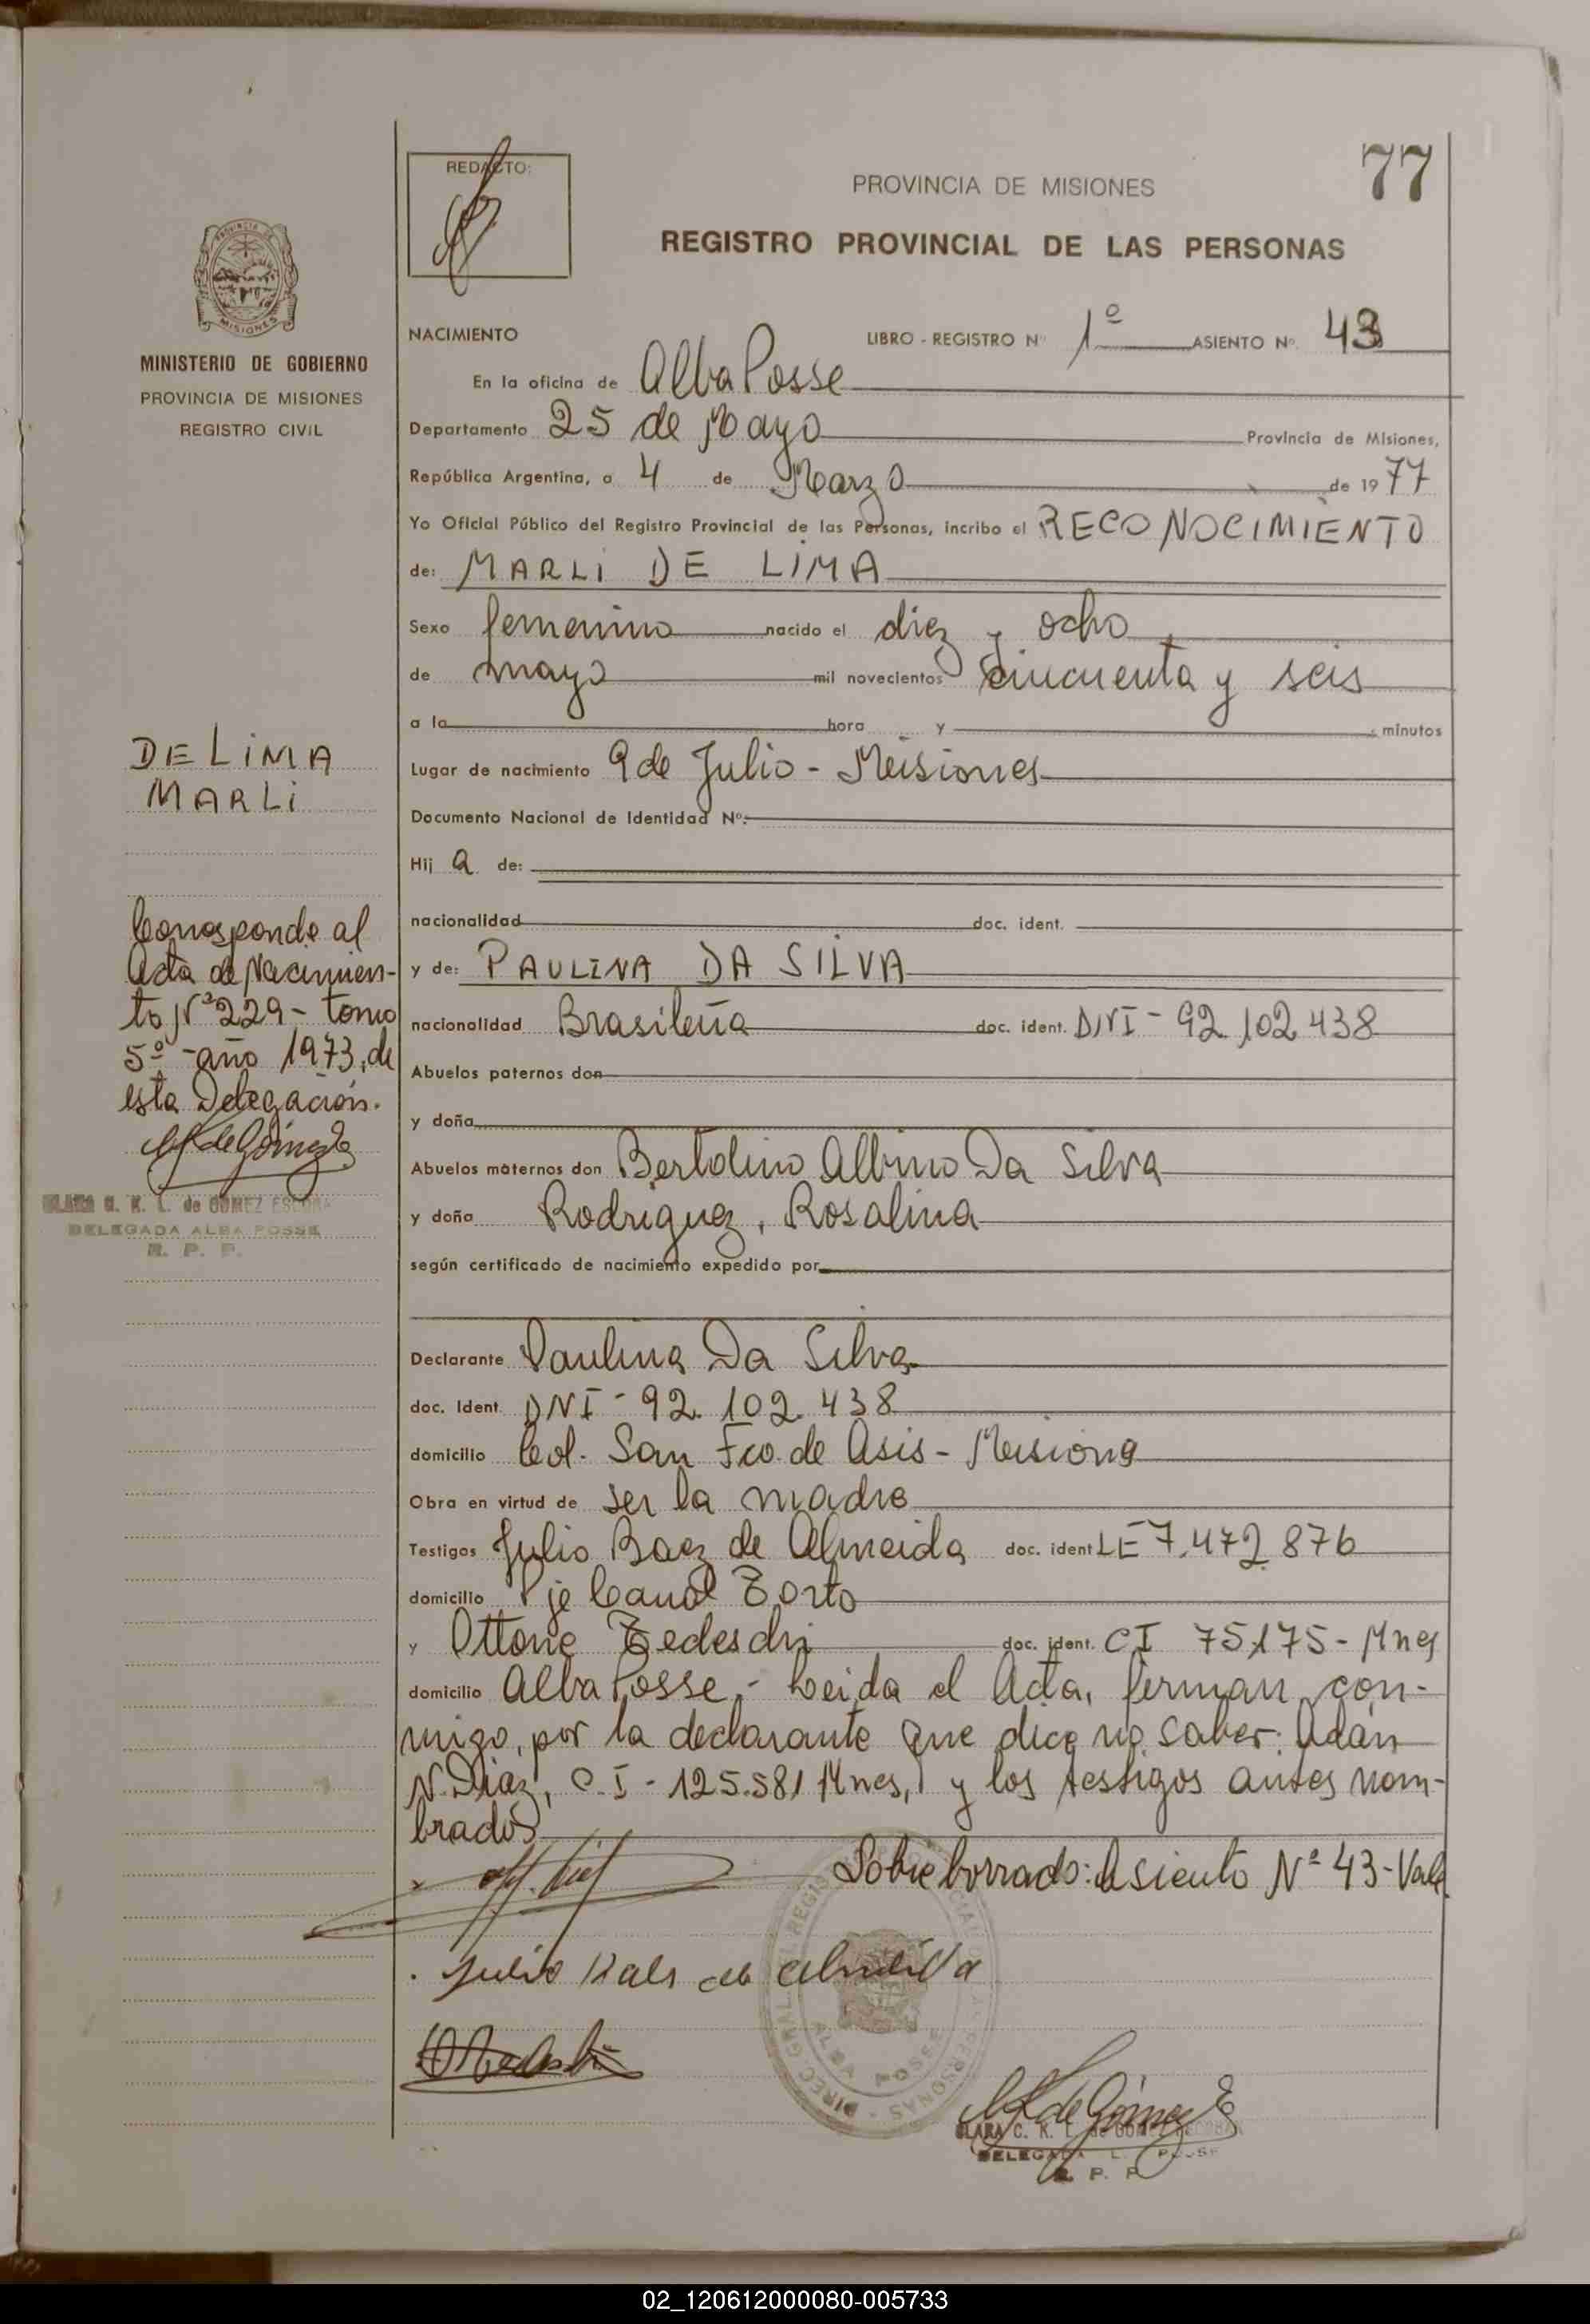 77
REDACTO:
PROVINCIA DE MISIONES
REGISTRO PROVINCIAL DE LAS PERSONAS
PROVINCIA DE
MISIONES
MINISTERIO DE GOBIERNO
PROVINCIA DE MISIONES
REGISTRO CIVIL
NACIMIENTO LIBRO - REGISTRO Nº 1º ASIENTO Nº. 43
En la oficina de Alba Posse
Departamento 25 de Mayo Provincia de Misiones,
República Argentina, a 4 de Marzo de 1977
Yo Oficial Público del Registro Provincial de las Personas, incribo el RECONOCIMIENTO
de: MARLI DE LIMA
Sexo femenino nacido el diez y ocho
de mayo mil novecientos cincuenta y seis
a la hora y minutos
Lugar de nacimiento 9 de Julio - Misiones
Documento Nacional de Identidad Nº:
Hij a de:
nacionalidad doc. ident.
y de: PAULINA DA SILVA
nacionalidad Brasileña doc. ident. DNI - 92.102.438
Abuelos paternos don
y doña
Abuelos maternos don Bertolino Albino Da Silva
y doña Rodriguez, Rosalina
según certificado de nacimiento expedido por
Declarante Paulina Da Silva
doc. Ident. DNI - 92.102.438
domicilio Col. San Fco. de Asis - Misiones
Obra en virtud de ser la madre
Testigos Julio Baez de Almeida doc. ident LE 7.472.876
domicilio Pje Canal Torto
y Ottone Tedeschi doc. ident. CI 75.175 - Mnes
domicilio Alba Posse.- Leida el Acta, firman con-
migo, por la declarante que dice no saber: Adán
N. Diaz, C.I - 125.581 Mnes, y los testigos antes nom-
brados
Sobre borrado: Asiento Nº 43 - Vale
DE LIMA
MARLI
Corresponde al
Acta de Nacimien-
to Nº 229 - tomo
5º - año 1973, de
esta Delegación.
CLARA C. K. L. de GOMEZ ESCOBAR
DELEGADA ALBA POSSE
R. P. P.
ALBA POSSE
CLARA C. K. L. de GOMEZ ESCOBAR
DELEGADA
R. P. P.
02_120612000080-005733